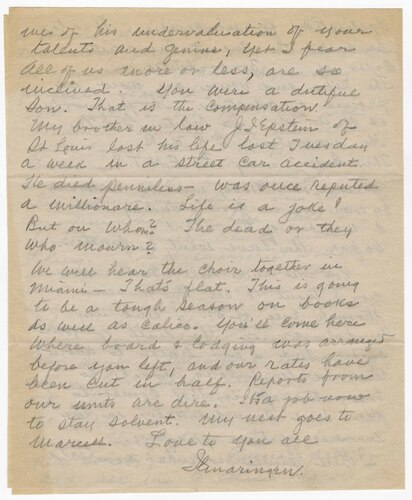 ures of his undervaluation of your
talents and genius, yet I fear
all of us more or less, are so
inclined. You were a dutiful
son. That is the compensation.
My brother in law J I Epstein of
St Louis lost his life last Tuesday
a week in a street car accident.
He died penniless - was once reputed
a millionare. Life is a joke!
But on whom? The dead or they
who mourn?
We will hear the choir together in
Miami - That's flat. This is going
to be a tough season on books
as well as calico. You'll come here
where board & lodging was arranged
before you left, and our rates have
been cut in half. Reports from
our units are dire. a job now
to stay solvent. My next goes to
Marcella. Love to you all